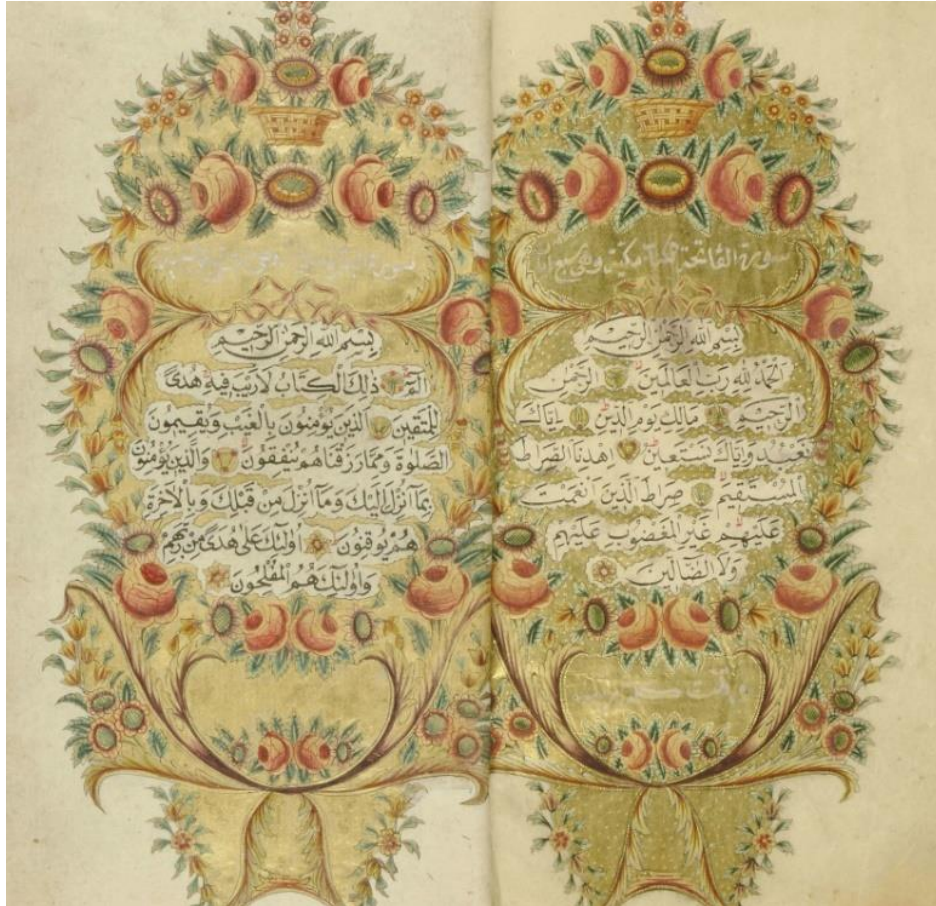 سورة الفاتحة مكية وهي سبع
بِسْمِ اللهِ الرَّحْمٰنِ الرَّحِيمِ
اَلْحَمْدُ لِلّٰهِ رَبِّ الْعَالَمِينَ الرَّحْمٰنِ
الرَّحِيمِ مَالِكِ يَوْمِ الدِّينِ اِيَّاكَ
نَعْبُدُ وَاِيَّاكَ نَسْتَعِينُ اِهْدِنَا الصِّرَاطَ
الْمُسْتَقِيمَ صِرَاطَ الَّذِينَ اَنْعَمْتَ
عَلَيْهِمْ غَيْرِ الْمَغْضُوبِ عَلَيْهِمْ
وَلَا الضَّالِّينَ
بِسْمِ اللهِ الرَّحْمٰنِ الرَّحِيمِ
الٓمٓ ذٰلِكَ الْكِتَابُ لَا رَيْبَ فِيهِ هُدًى
لِلْمُتَّقِينَ اَلَّذِينَ يُؤْمِنُونَ بِالْغَيْبِ وَيُقِيمُونَ
الصَّلٰوةَ وَمِمَّا رَزَقْنَاهُمْ يُنْفِقُونَ وَالَّذِينَ يُؤْمِنُونَ
بِمَٓا اُنْزِلَ اِلَيْكَ وَمَٓا اُنْزِلَ مِنْ قَبْلِكَ وَبِالْاٰخِرَةِ
هُمْ يُوقِنُونَ اُولٰٓئِكَ عَلٰى هُدًى مِنْ رَبِّهِمْ
وَاُولٰٓئِكَ هُمُ الْمُفْلِحُونَ